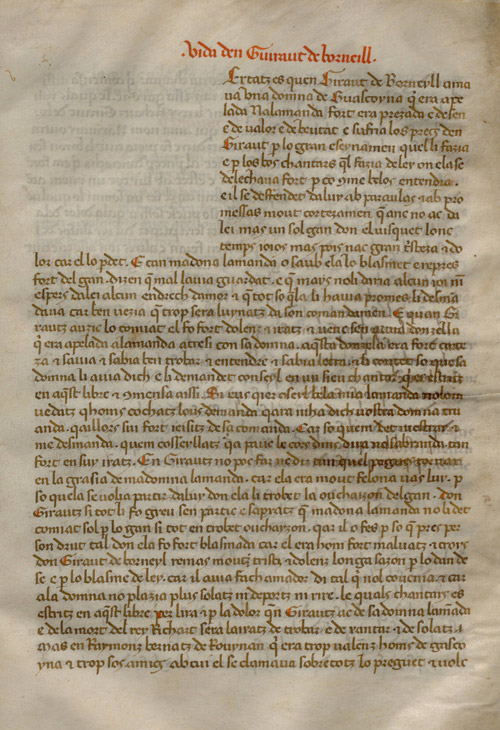 ·vida den Guiraut de borneill·
Ertatz es quen Giraut de Borneyll ama
ua una domna de Gualcoyna q̃ era ape
lada Nalamanda fort era prezada e de sen
e de valor e de beutat e sufria los precs den
Giraut p lo gran esenyamen quel li fazia
e p los bos chantars q̃l fazia de ley on ela se
delechaua fort p co q̃ne be los entendia.
e il se desfendet daluy ab paraulas e ab pro
messas mout cortezamen q̃ anc no ac da
lei mas un sol gan don el uisquet lonc
temps ioios mas pois nac gran esteza e do
lor car el lo pdet. E can madona lamanda o saub ela lo blasmet e repres
fort del gan. dizen q̃ mal lauia guardat. e q̃ mays noli daria alcun ioi ni
espers dalei alcun endrech damor e q̃ tot so q̃la li hauia promes li desma
daua car ben uezia q̃ trop sera luynatz da son comandamen. E quan Gi
rautz auzic lo comiat el fo fort dolenz e iratz e uenc sen donzella
q̃ era apelada alamanda atresi con sa domna. aquesta donzela era fort corte
za e sauia e sabia ben trobar e entendre e sabia letra. e li contet so que sa
domna li auia dich e li demandet conseyl en un sieu chantar que es escrit
en aq̃st libre e comensa aissi. Si eus quer coseyl bela mia lamanda nolom
vedatz q̃ homs cochatz lous demanda qara mha dich vostra domna tru
anda. quallors sui fort ieisitz de sa comanda. Car so quem det me
me desmanda. quem cosseyllatz
fort en suy iratz. En Girautz no poc far ne dir tan quel pogues tornar
en la grasia de madomna lamanda. car ela era mout felona uas luy. p
so quela se uolia partir daluy don ela li trobet la ouchaizon del gan. don
Girautz si tot li fo greu sen partic e sapiatz que madona lamanda no li det
comiat sol p lo gan si tot en trobet ouchayzon. qar il o fes p so q̃ pres per
son drut tal don ela fo fort blasmada car el era hom fort maluatz e crois
don Giraut de borneyl remas moutz tristz e dolenz longa sazon p lo dan de
se e p lo blasme de ley. car il auia fach amador di tal q̃ nol couenia e car
ala domna no plazia plus solatz ni deportz ni rire. le quals chantars es
escritz en aq̃st libre per lira e p la dolor q̃n Girautz ac de sa domna lamada
e de la mort del rey Richart sera laixatz de trobar e de cantar e de solatz.
mas en Raymonz bernatz de Rouynan q̃ era trop valenz homs de gasco
yna e trop sos amics ab cui el se clamaua sobretotz lo preguet e uolc